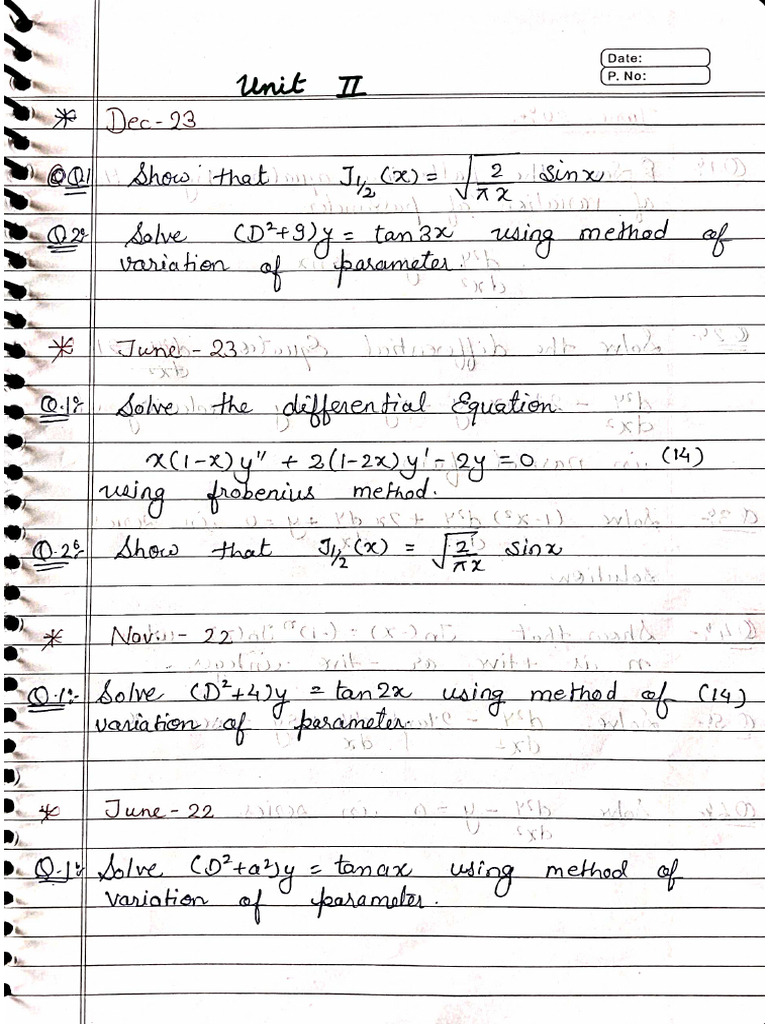 Date:
P. No:
Unit II
* Dec-23
Q1 Show that J1/2 (x) = √(2/πx) sinx
Q2:- Solve (D²+9)y = tan3x using method of
variation of parameter.
* June-23
Q.1:- Solve the differential Equation
x(1-x)y" + 2(1-2x)y' - 2y = 0 (14)
using frobenius method.
Q.2:- Show that J1/2 (x) = √(2/πx) sinx
* Nov.- 22
Q.1:- Solve (D²+4)y = tan2x using method of (14)
variation of parameter.
* June-22
Q.1:- Solve (D²+a²)y = tanax using method of
variation of parameter.